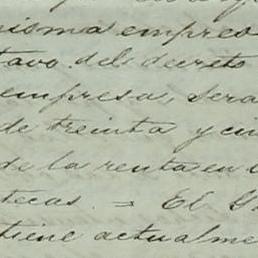 misma empres
tavo del decreto
empresa, sera
de treinta y cin
de la renta en
tecas. = El G
tiene actualme